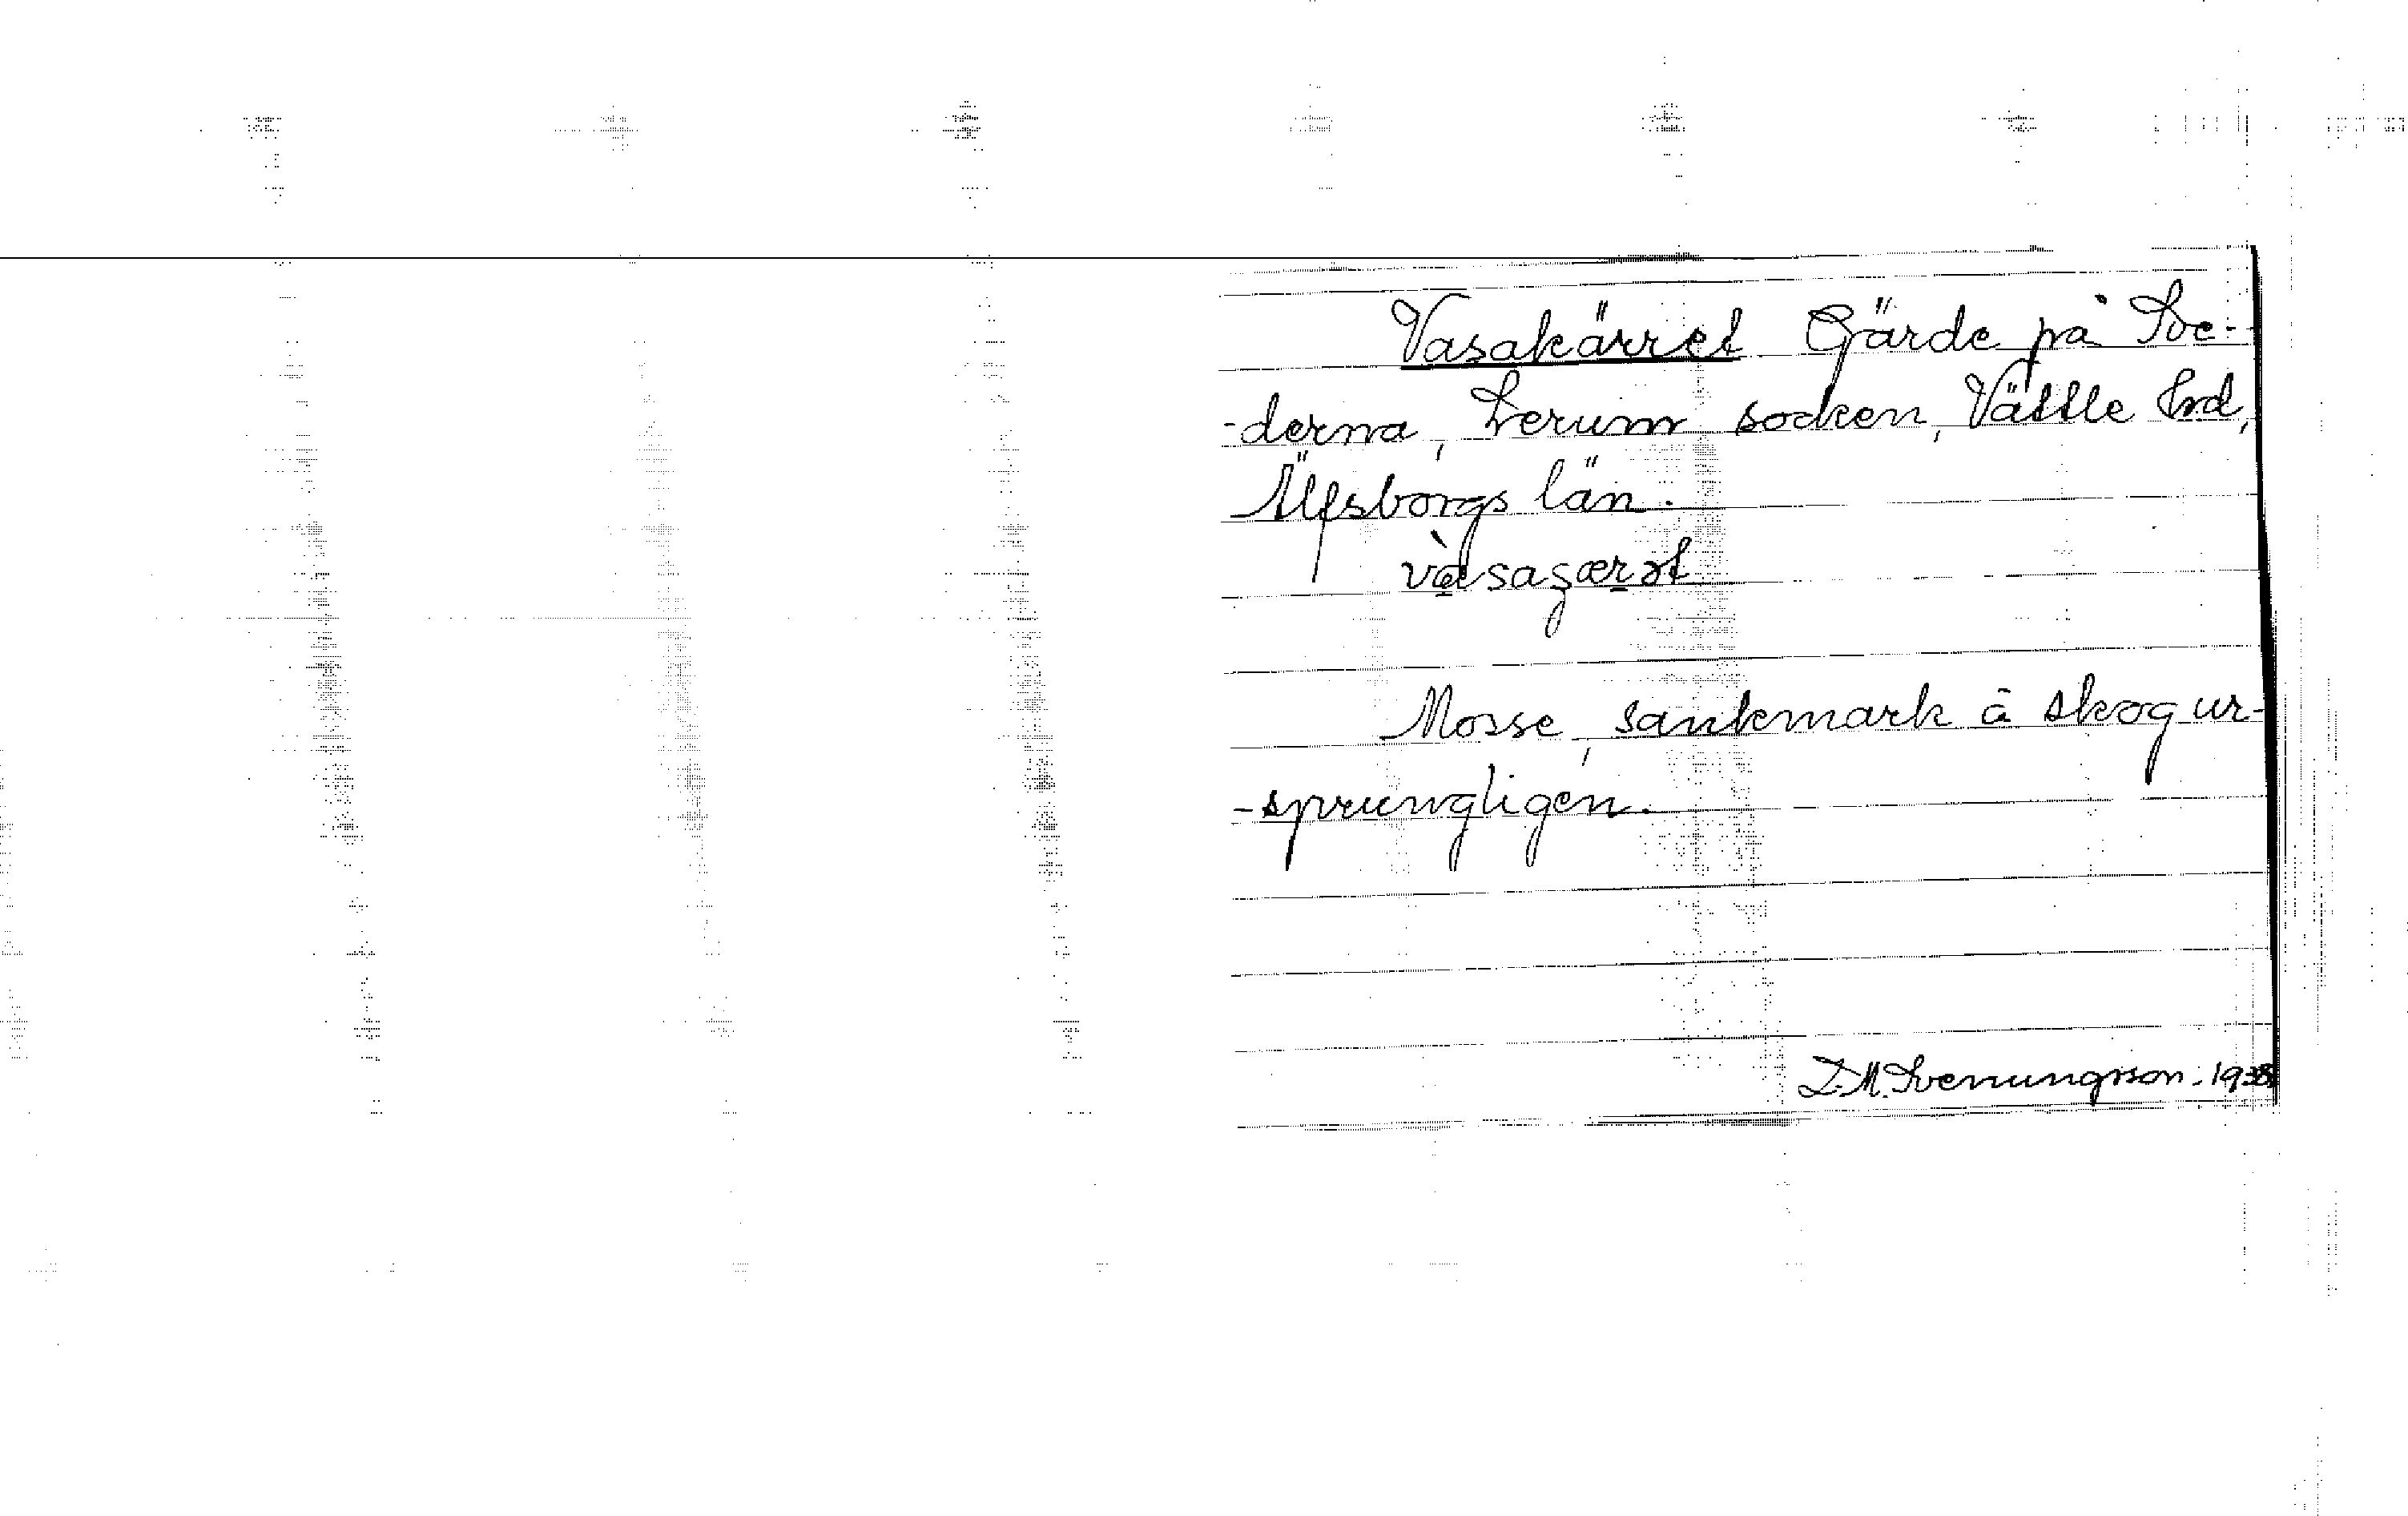 Vasakärret Gärde på Sve-
-derna, Lerum socken, Vättle Hrd,
Älfsborgs län.
Mosse, sankmark å skog ur-
-sprungligen.
D.M. Svenungsson. 1938